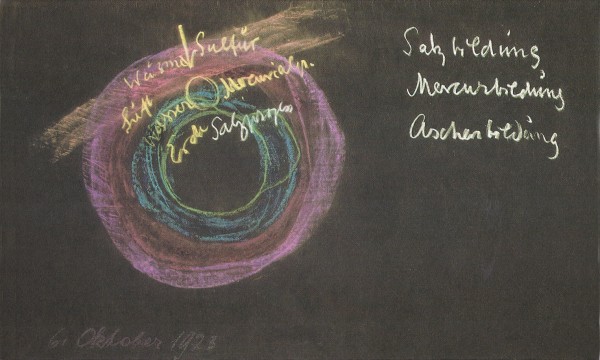 Wärme Sulfur
Luft Mercurialpr.
Wasser
Erde Salzprozess
Salzbildung
Mercurbildung
Aschenbildung
6. Oktober 1923